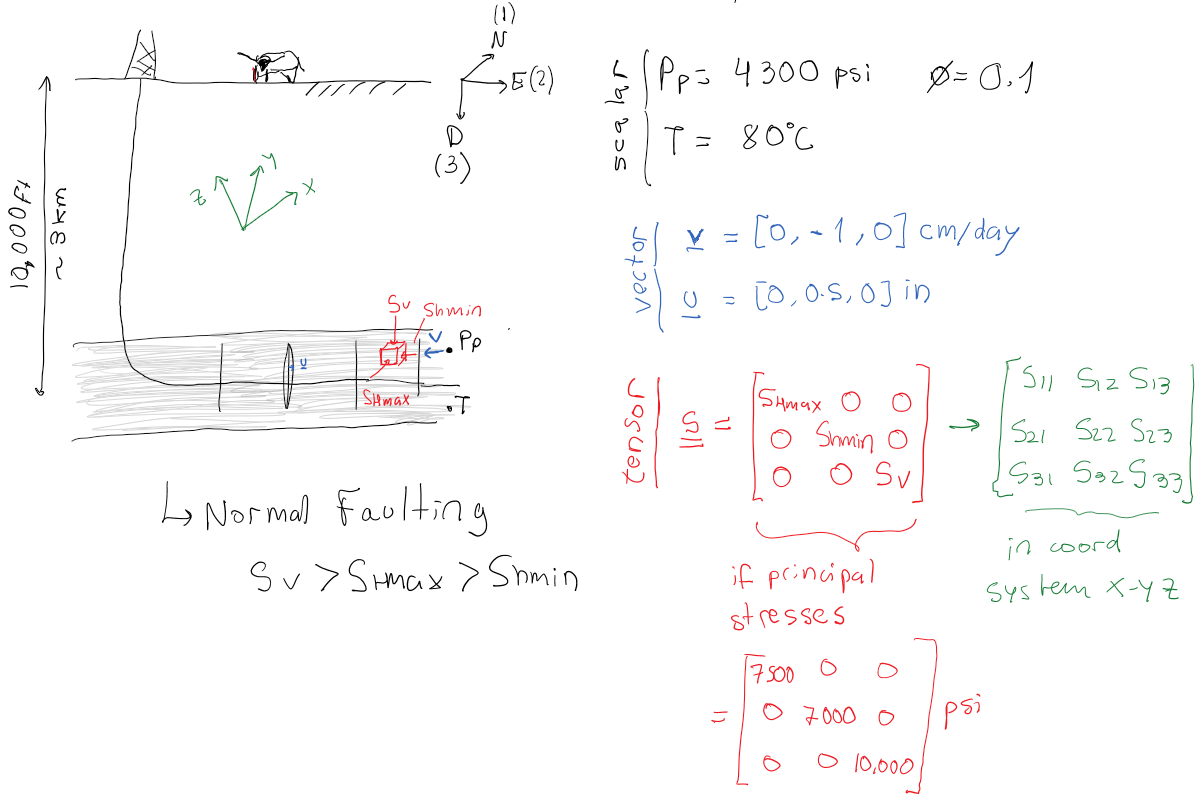 (1)
N
E(2)
D
(3)
z
y
x
10,000 ft
~ 3 km
Sv
Shmin
v
Pp
u
SHmax
T
↳ Normal Faulting
Sv > SHmax > Shmin
scalar
Pp = 4300 psi ø = 0.1
T = 80°C
vector
v = [0, -1, 0] cm/day
u = [0, 0.5, 0] in
tensor
S =
SHmax 0 0
0 Shmin 0
0 0 Sv
→
S11 S12 S13
S21 S22 S23
S31 S32 S33
if principal
stresses
in coord
system x-y z
=
7500 0 0
0 7000 0
0 0 10,000
psi